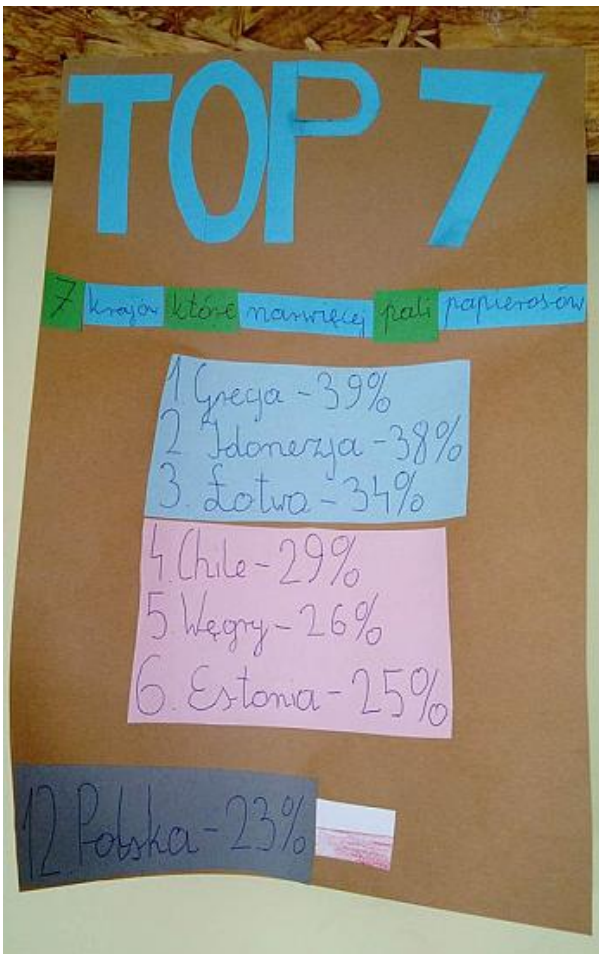 TOP 7
7 krajów które narwięcej pali papierosów
1 Grecja - 39%
2 Idonezja - 38%
3. Łotwa - 34%
4. Chile - 29%
5 Węgry - 26%
6. Estonia - 25%
12. Polska - 23%